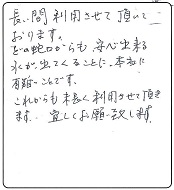 長い間利用させて頂いて
おります。
どの蛇口からも安心出来る
水が出てくることに、本当に
有難いことです。
これからも末長く利用させて頂き
ます。宜しくお願い致します。